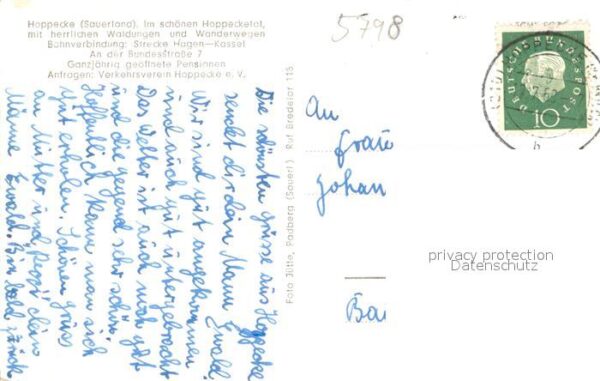 Hoppecke (Sauerland). Im schönen Hoppecketal,
mit herrlichen Waldungen und Wanderwegen
Bahnverbindung: Strecke Hagen—Kassel
An der Bundesstraße 7
Ganzjährig geöffnete Pensionen
Anfragen: Verkehrsverein Hoppecke e. V.
5798
DEUTSCHE BUNDESPOST
10
b
Die schönsten Grüsse aus Hoppecke
sendet dir dein Mann Ewald.
Wir sind gut angekommen
und auch gut untergebracht
Das Wetter ist auch noch gut
und die gegend sehr schön.
Hoffentlich kann man sich
gut erholen. Schönen Gruss
an Mutter und dein
Männe Ewald. Bin bald zurück.
Foto Jütte, Padberg (Sauerl.) Ruf Bredelar 115
An
Frau
Johan
Ba
privacy protection
Datenschutz